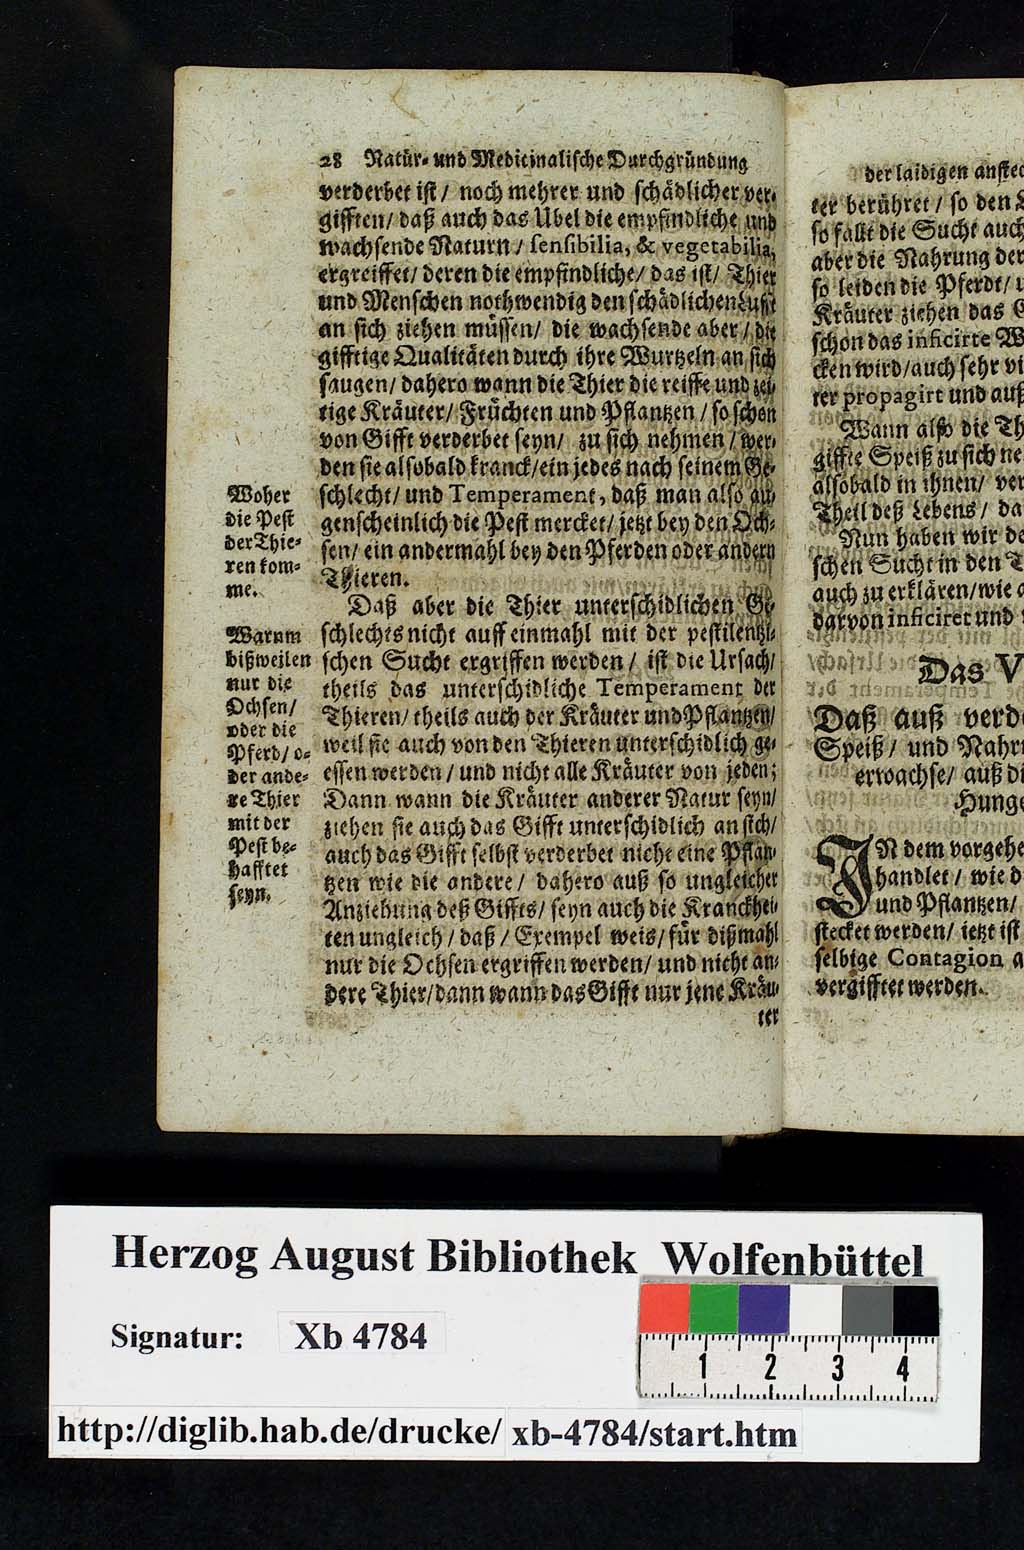 28 Natür- und Medicinalische Durchgründung
verderbet ist / noch mehrer und schädlicher ver-
gifften / daß auch das Übel die empfindliche und
wachsende Naturn / sensibilia, & vegetabilia,
ergreiffet / deren die empfindliche / das ist / Thier
und Menschen nothwendig den schädlichen Lufft
an sich ziehen müssen / die wachsende aber / die
gifftige Qualitäten durch ihre Wurtzeln an sich
saugen / dahero wann die Thier die reiffe und zei-
tige Kräuter / Früchten und Pflantzen / so schon
von Gifft verderbet seyn / zu sich nehmen / wer-
den sie alsobald kranck / ein jedes nach seinem Ge-
schlecht / und Temperament, daß man also au-
genscheinlich die Pest mercket / jetzt bey den Och-
sen / ein andermahl bey den Pferden oder andern
Thieren.
Woher
die Pest
der Thie-
ren kom-
me.
Daß aber die Thier unterschidlichen Ge-
schlechts nicht auff einmahl mit der pestilentzi-
schen Sucht ergriffen werden / ist die Ursach /
theils das unterschidliche Temperament der
Thieren / theils auch der Kräuter und Pflantzen /
weil sie auch von den Thieren unterschidlich ge-
essen werden / und nicht alle Kräuter von jeden;
Dann wann die Kräuter anderer Natur seyn /
ziehen sie auch das Gifft unterschidlich an sich /
auch das Gifft selbst verderbet nicht eine Pflan-
tzen wie die andere / dahero auß so ungleicher
Anziehung deß Giffts / seyn auch die Kranckhei-
ten ungleich / daß / Exempel weis / für dißmahl
nur die Ochsen ergriffen werden / und nicht an-
dere Thier / dann wann das Gifft nur jene Kräu-
ter
Warum
bißweilen
nur die
Ochsen /
oder die
Pferd / o-
der ande-
re Thier
mit der
Pest be-
hafftet
seyn.
der laidigen anstec
ter berühret / so den
so fallt die Sucht auch
aber die Nahrung der
so leiden die Pferdt /
Kräuter ziehen das
schon das inficirte
cken wird / auch sehr vi
rer propagirt und auß
Wann also die Th
giffte Speiß zu sich ne
alsobald in ihnen / ver
Theil deß Lebens / da
Nun haben wir de
schen Sucht in den T
auch zu erklären / wie
darvon inficiret und
Das V
Daß auß verd
Speiß / und Nahr
erwachse / auß di
Hunge
IN dem vorgehe
handlet / wie d
und Pflantzen /
stecket werden / jetzt ist
selbige Contagion a
vergifftet werden.
Herzog August Bibliothek Wolfenbüttel
Signatur: Xb 4784
1 2 3 4
http://diglib.hab.de/drucke/ xb-4784/start.htm